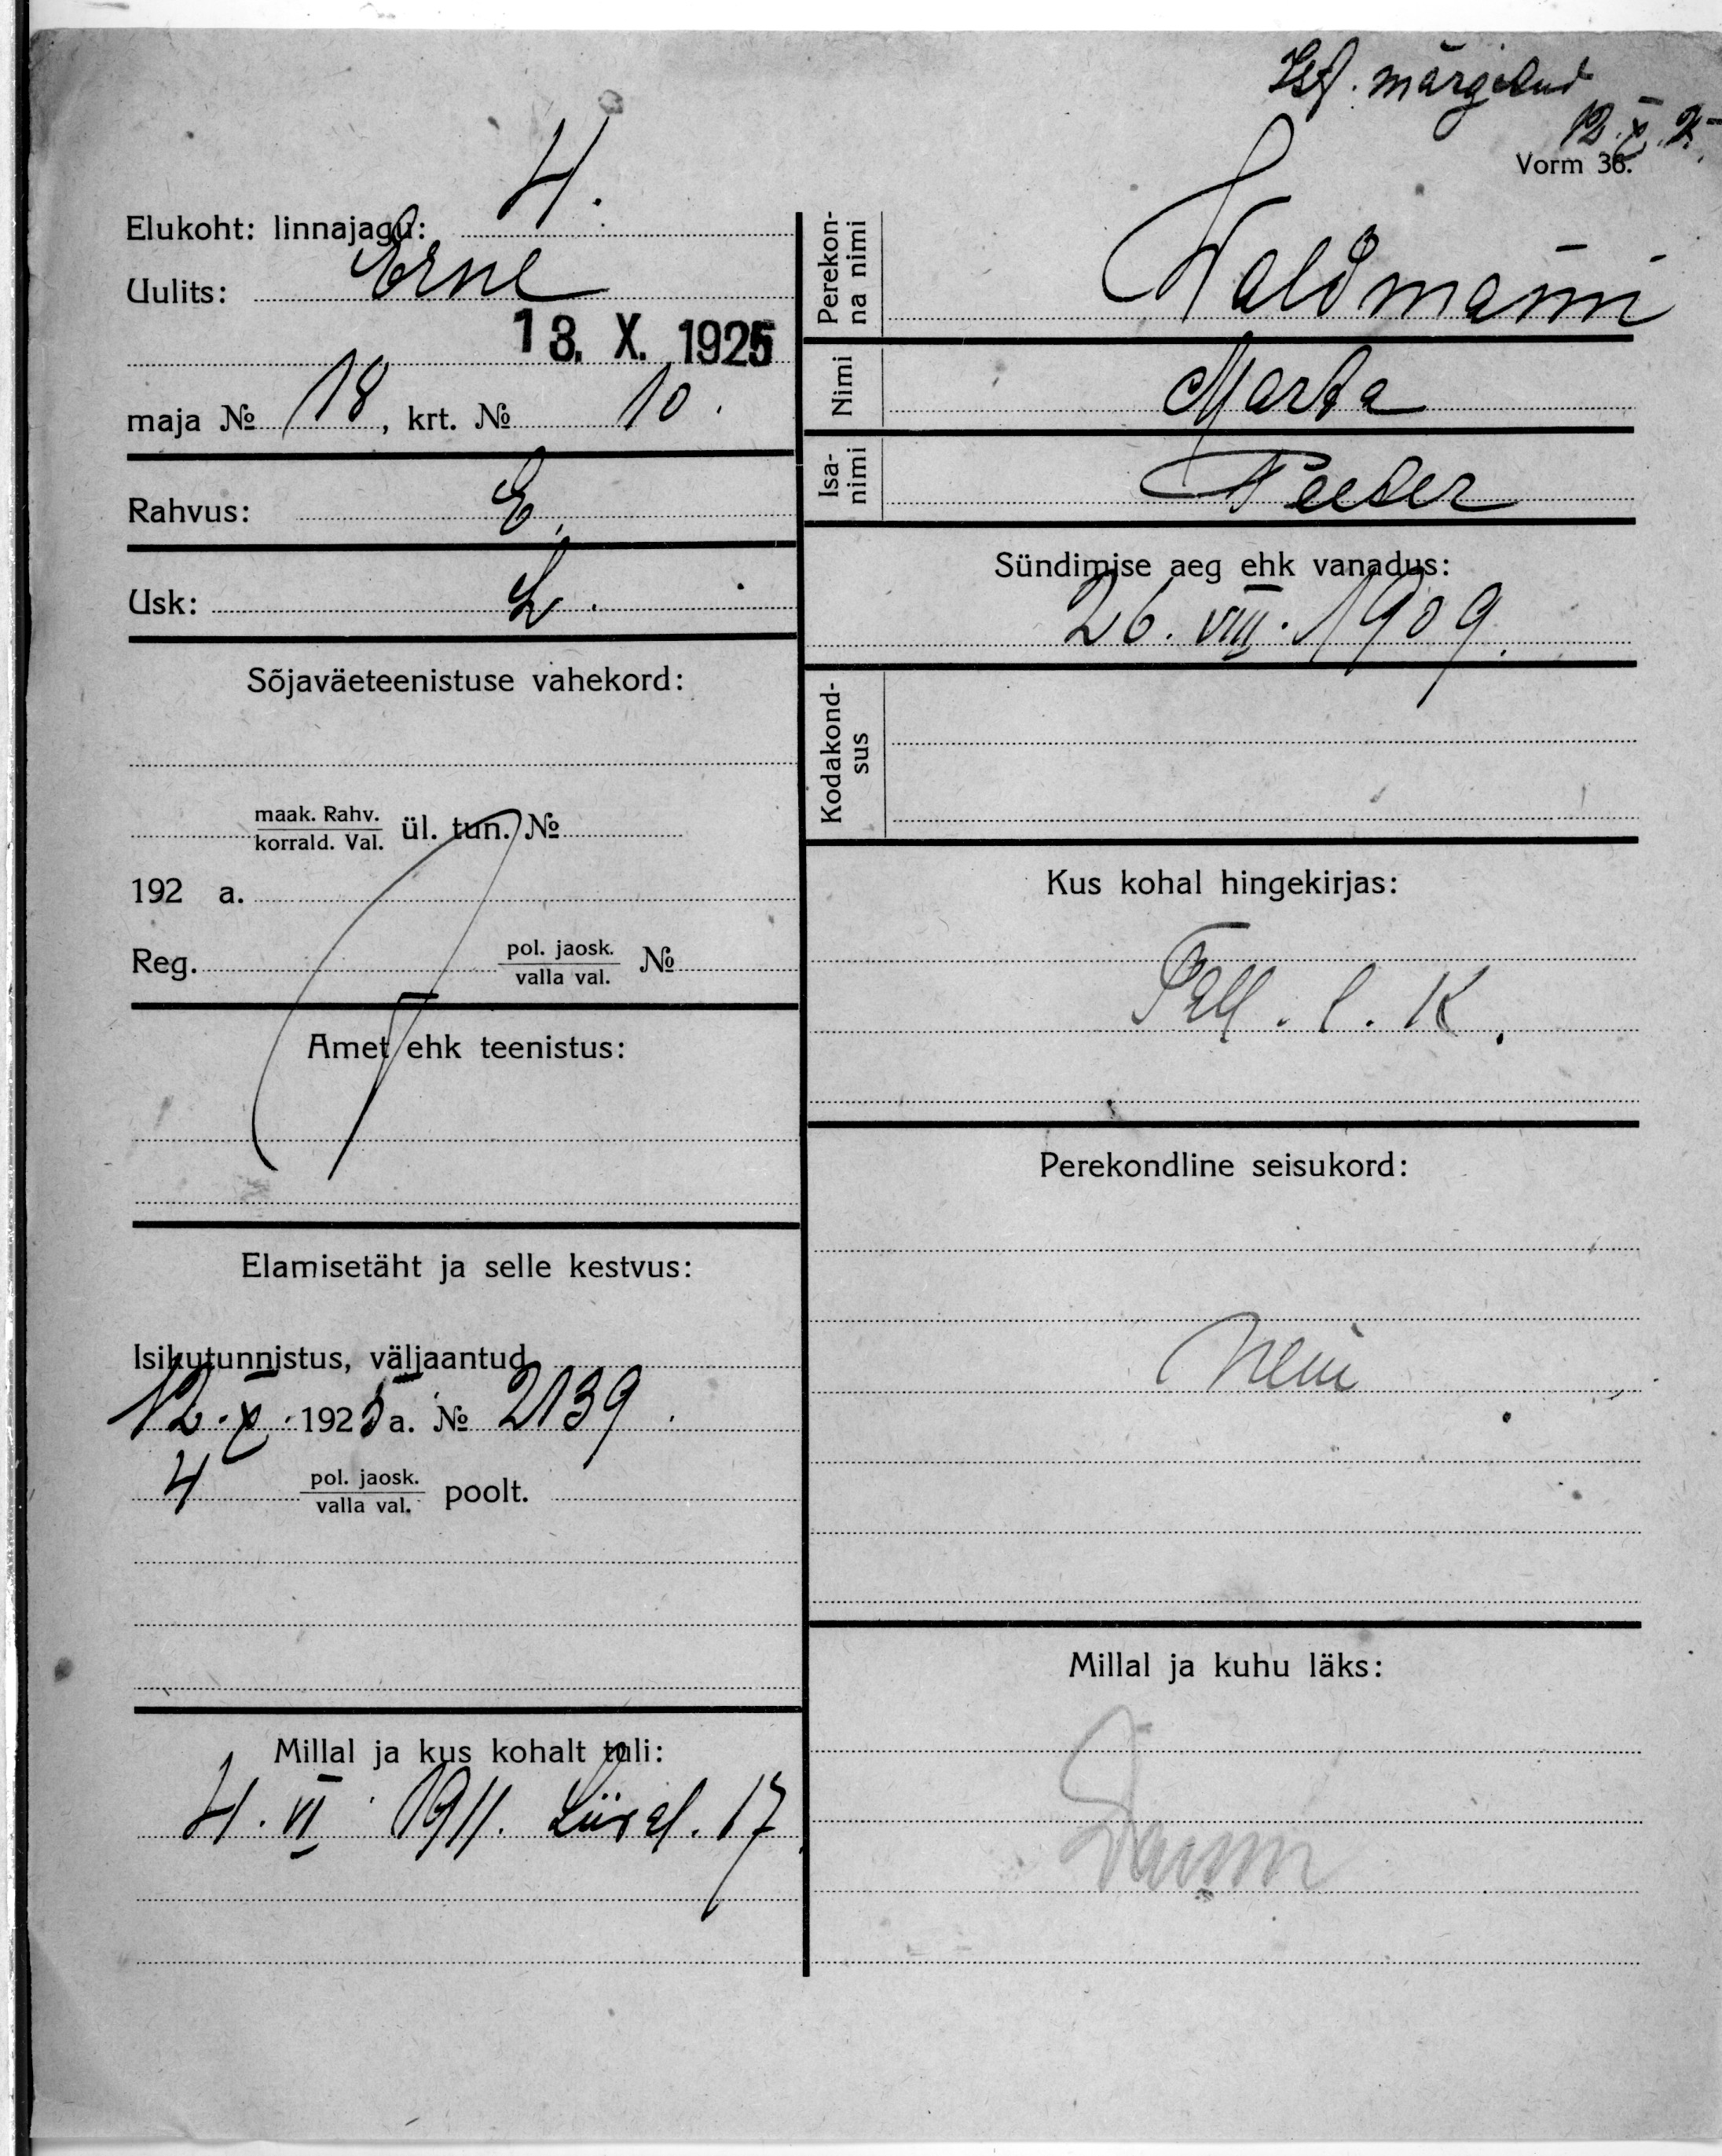 märgitud
12.X.25
Vorm 36.
Elukoht: linnajagu: 4.
Uulits: Erne
13. X. 1925
maja № 18, krt. № 10.
Rahvus: E.
Usk: L.
Sõjaväeteenistuse vahekord:
maak. Rahv.
korrald. Val. ül. tun. №
192 a.
Reg. pol. jaosk.
valla val. №
Amet ehk teenistus:
Elamisetäht ja selle kestvus:
Isikutunnistus, väljaantud
12.X.1925 a. № 2139.
4 pol. jaosk.
valla val. poolt.
Millal ja kus kohalt tuli:
4. VI 1911. 17
Perekon-
na nimi Waldmann
Nimi Marta
Isa-
nimi Peeter
Sündimise aeg ehk vanadus:
26. VIII. 1909.
Kodakond-
sus
Kus kohal hingekirjas:
Tall. l. K.
Perekondline seisukord:
Neiu
Millal ja kuhu läks: